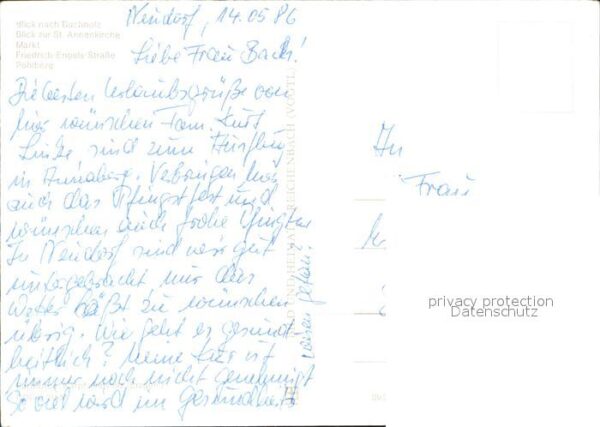 Blick nach Buchholz
Blick zur St. Annenkirche
Markt
Friedrich-Engels-Straße
Pöhlberg
Neudorf, 14.05.86
Liebe Frau Bach!
Die besten Urlaubsgrüße von
hier wünschen Fam. Kurt
Linke sind zum Ausflug
in Annaberg. Verbringen hier
auch das Pfingstfest und
wünschen auch frohe Pfingsten
In Neudorf sind wir gut
untergebracht nur das
Wetter läßt zu wünschen
übrig. Wie geht es gesund-
heitlich? Meine Kur ist
immer noch nicht genehmigt
So viel wird im Gesundheits
wesen getan!
BILD UND HEIMAT REICHENBACH (VOGTL)
An
Frau
privacy protection
Datenschutz